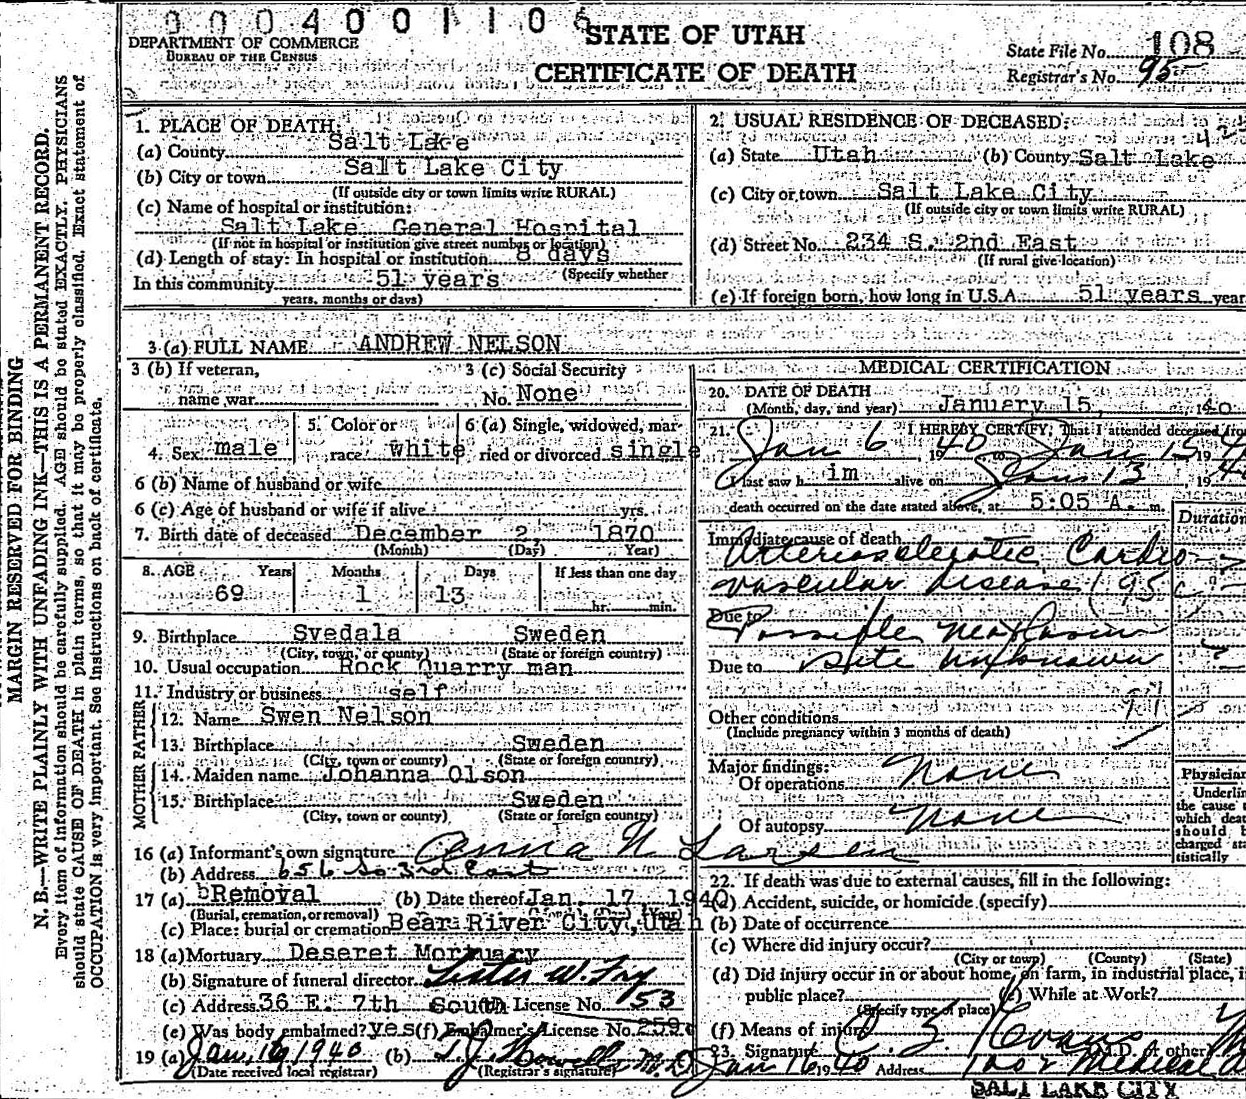 0004001106
STATE OF UTAH
CERTIFICATE OF DEATH
DEPARTMENT OF COMMERCE
BUREAU OF THE CENSUS
State File No. 108
Registrar's No. 95
MARGIN RESERVED FOR BINDING
N. B.—WRITE PLAINLY WITH UNFADING INK—THIS IS A PERMANENT RECORD.
Every item of information should be carefully supplied. AGE should be stated EXACTLY. PHYSICIANS
should state CAUSE OF DEATH in plain terms, so that it may be properly classified. Exact statement of
OCCUPATION is very important. See instructions on back of certificate.
1. PLACE OF DEATH:
(a) County Salt Lake
(b) City or town Salt Lake City
(If outside city or town limits write RURAL)
(c) Name of hospital or institution:
Salt Lake General Hospital
(If not in hospital or institution give street number or location)
(d) Length of stay: In hospital or institution 8 days
(Specify whether
In this community 51 years
years, months or days)
2. USUAL RESIDENCE OF DECEASED:
(a) State Utah (b) County Salt Lake
(c) City or town Salt Lake City
(If outside city or town limits write RURAL)
(d) Street No. 234 S. 2nd East
(If rural give location)
(e) If foreign born, how long in U.S.A. 51 years year
3 (a) FULL NAME ANDREW NELSON
3 (b) If veteran,
name war
3 (c) Social Security
No. None
4. Sex male
5. Color or
race white
6 (a) Single, widowed, mar-
ried or divorced single
6 (b) Name of husband or wife
6 (c) Age of husband or wife if alive yrs.
7. Birth date of deceased December 2, 1870
(Month) (Day) Year)
8. AGE Years Months Days If less than one day
69 1 13 hr. min.
9. Birthplace Svedala Sweden
(City, town, or county) (State or foreign country)
10. Usual occupation Rock Quarry man
11. Industry or business self
FATHER
12. Name Swen Nelson
13. Birthplace Sweden
(City, town or county) (State or foreign country)
MOTHER
14. Maiden name Johanna Olson
15. Birthplace Sweden
(City, town or county) (State or foreign country)
16 (a) Informant's own signature Anna N Larsen
(b) Address 656 So 3rd East
17 (a) Removal (b) Date thereof Jan. 17, 1940
(Burial, cremation, or removal)
(c) Place: burial or cremation Bear River City, Utah
18 (a) Mortuary Deseret Mortuary
(b) Signature of funeral director
(c) Address 36 E. 7th South License No. 53
(e) Was body embalmed? yes (f) Embalmer's License No. 259
19 (a) Jan. 16, 1940 (b)
(Date received local registrar) (Registrar's signature)
MEDICAL CERTIFICATION
20. DATE OF DEATH
(Month, day, and year) January 15, 1940
21. I HEREBY CERTIFY, That I attended deceased from
Jan 6, 1940 to Jan 15 19 4
I last saw him alive on Jan 13, 19 4
death occurred on the date stated above, at 5:05 A. m.
Duration
Immediate cause of death
Arteriosclerotic Cardio
vascular disease (95 c
Due to Possible neoplasm
Due to site unknown
Other conditions
(Include pregnancy within 3 months of death)
Major findings:
Of operations None
Of autopsy None
Physician
Underlin
the cause
which deat
should b
charged sta
tistically
22. If death was due to external causes, fill in the following:
(a) Accident, suicide, or homicide (specify)
(b) Date of occurrence
(c) Where did injury occur?
(City or town) (County) (State)
(d) Did injury occur in or about home, on farm, in industrial place, i
public place? (e) While at Work?
(Specify type of place)
(f) Means of injury
23. Signature Evans M.D. or other
Jan 16 1940 Address Medical
SALT LAKE CITY